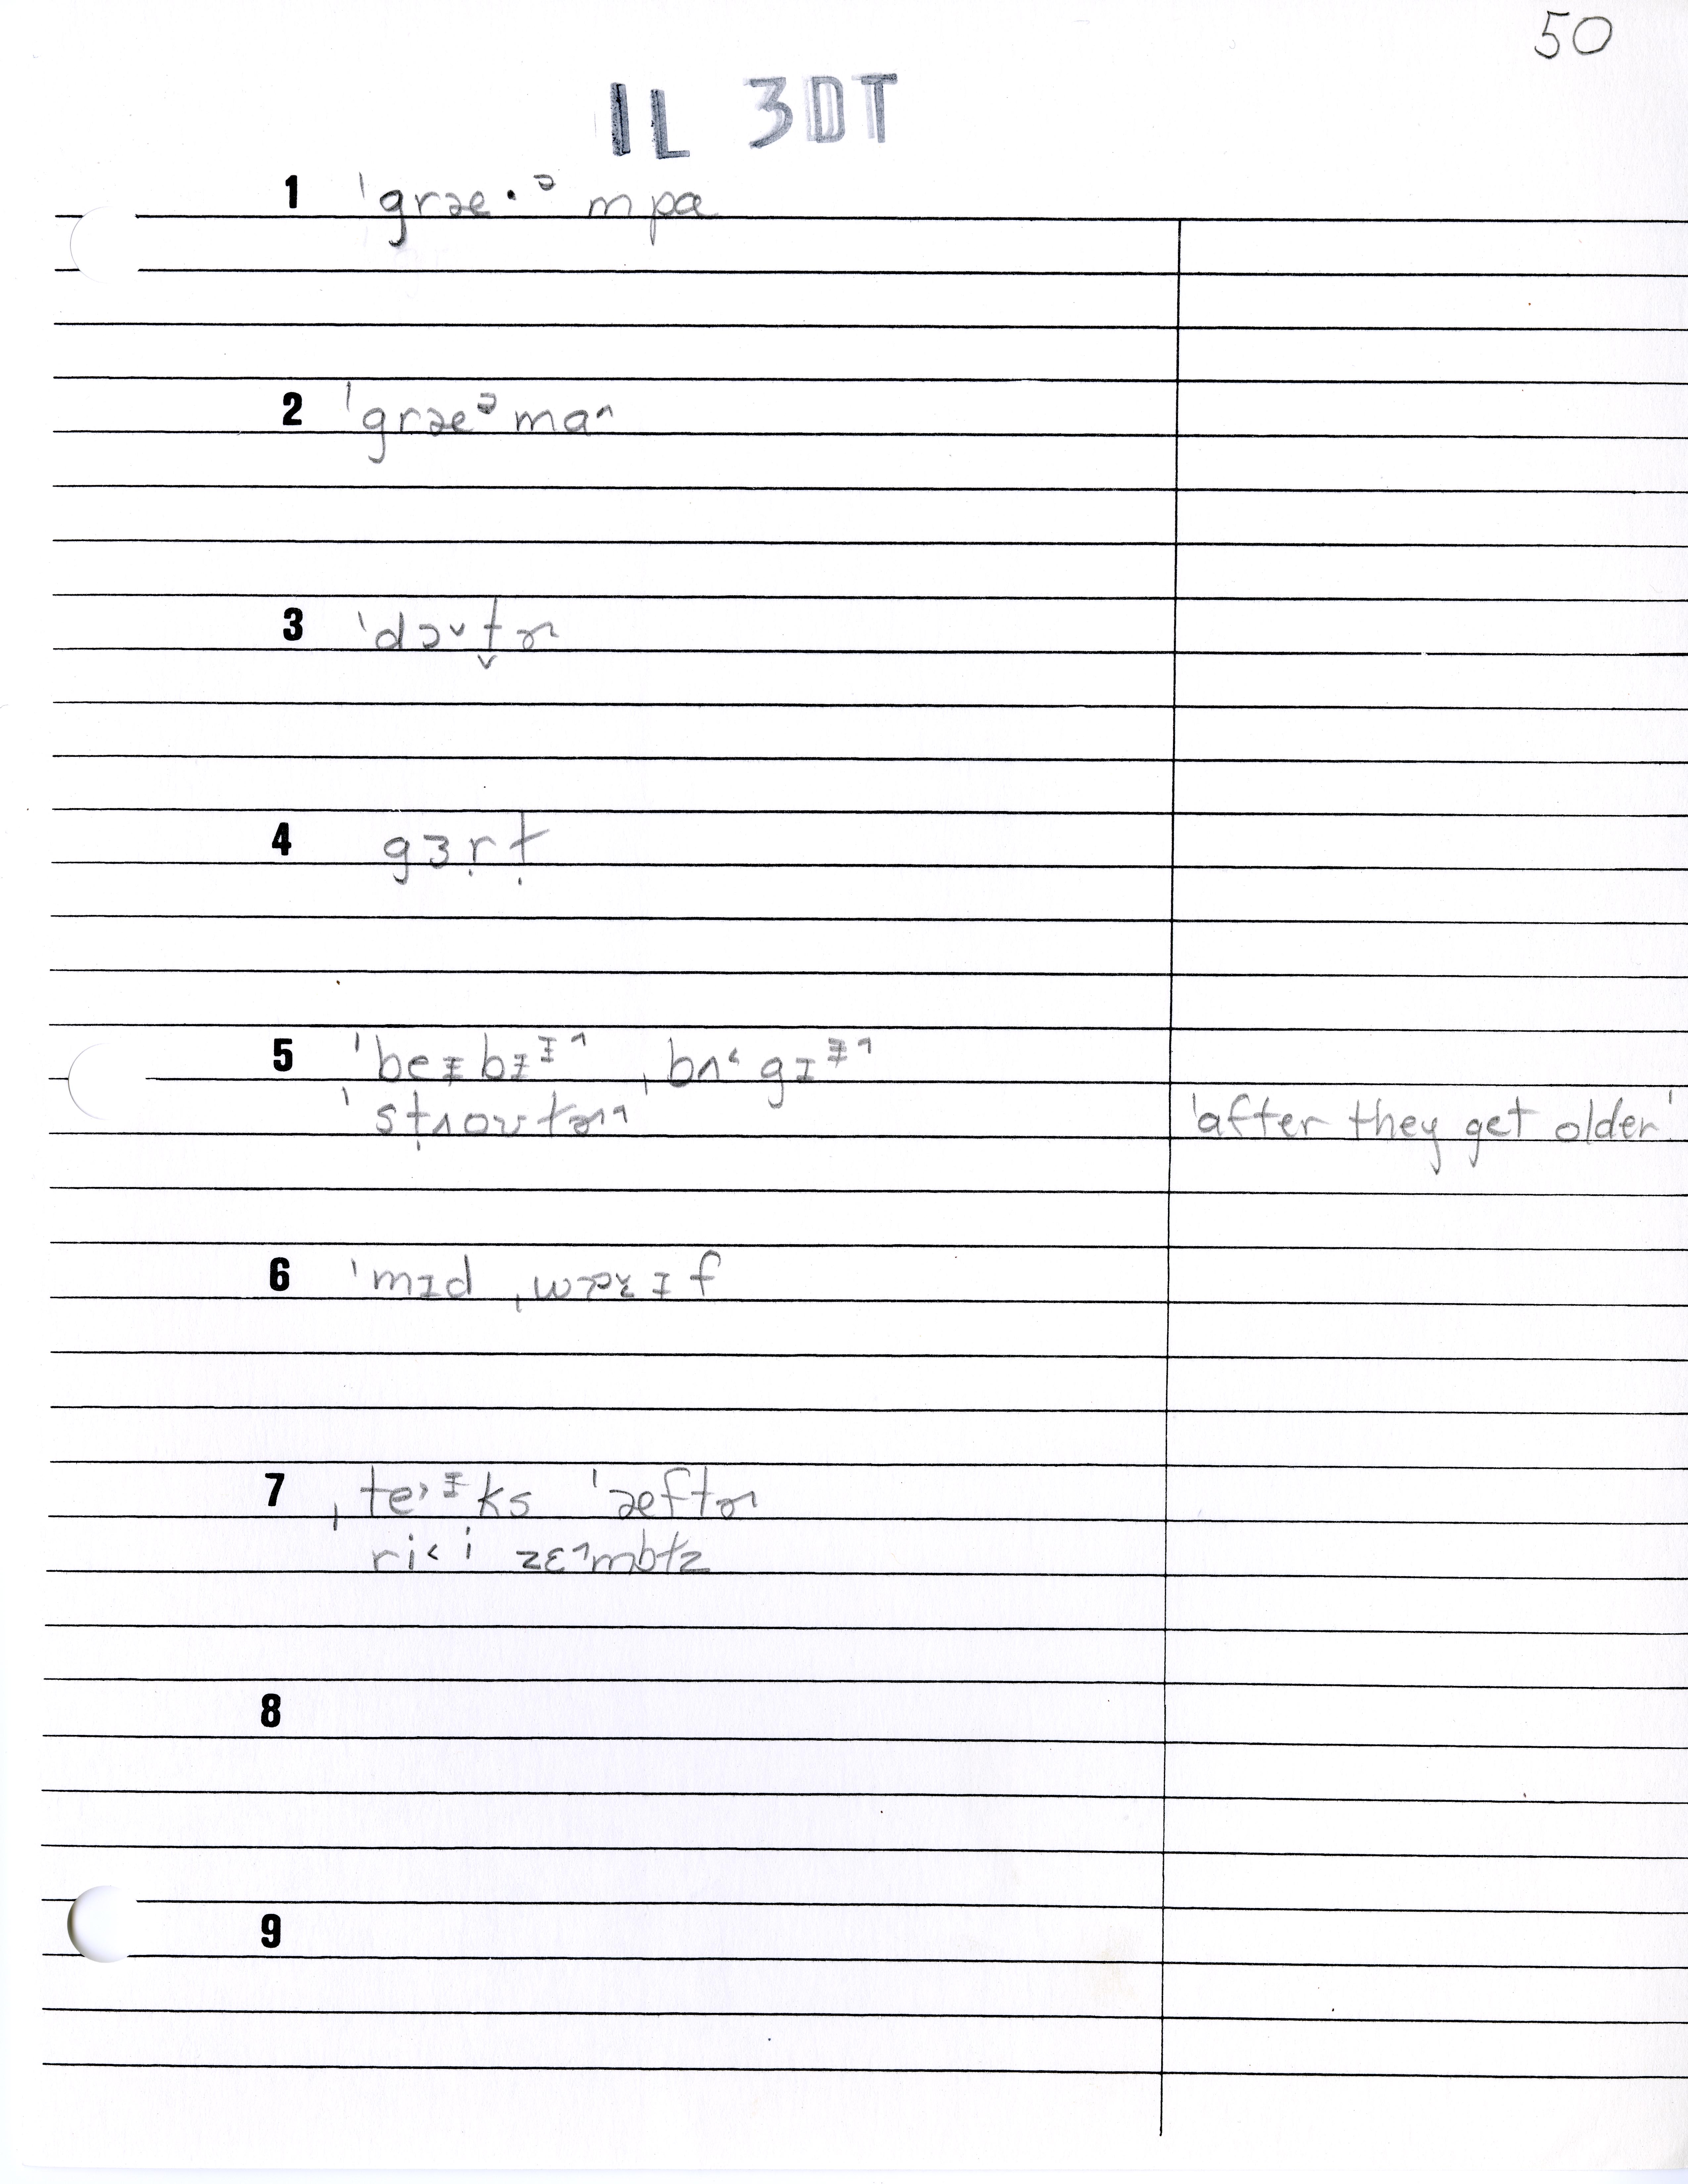 50
IL 3DT
1 ˈgræ·ᵊ mpɑ
2 ˈgræᵊmɑ^
3 ˈdɔ˅t̬ɚ
4 gɜṛṭ
5 ˈbeɪbɪᶤ^ ˌbʌ˂gɪᶤ^
ˈst̩ʌoʊtɚ^
'after they get older'
6 ˈmɪd ˌwɪf
7 ˌte˃ᶤks ˈæftɚ
ri˂i zɛ^mbɫz
8
9